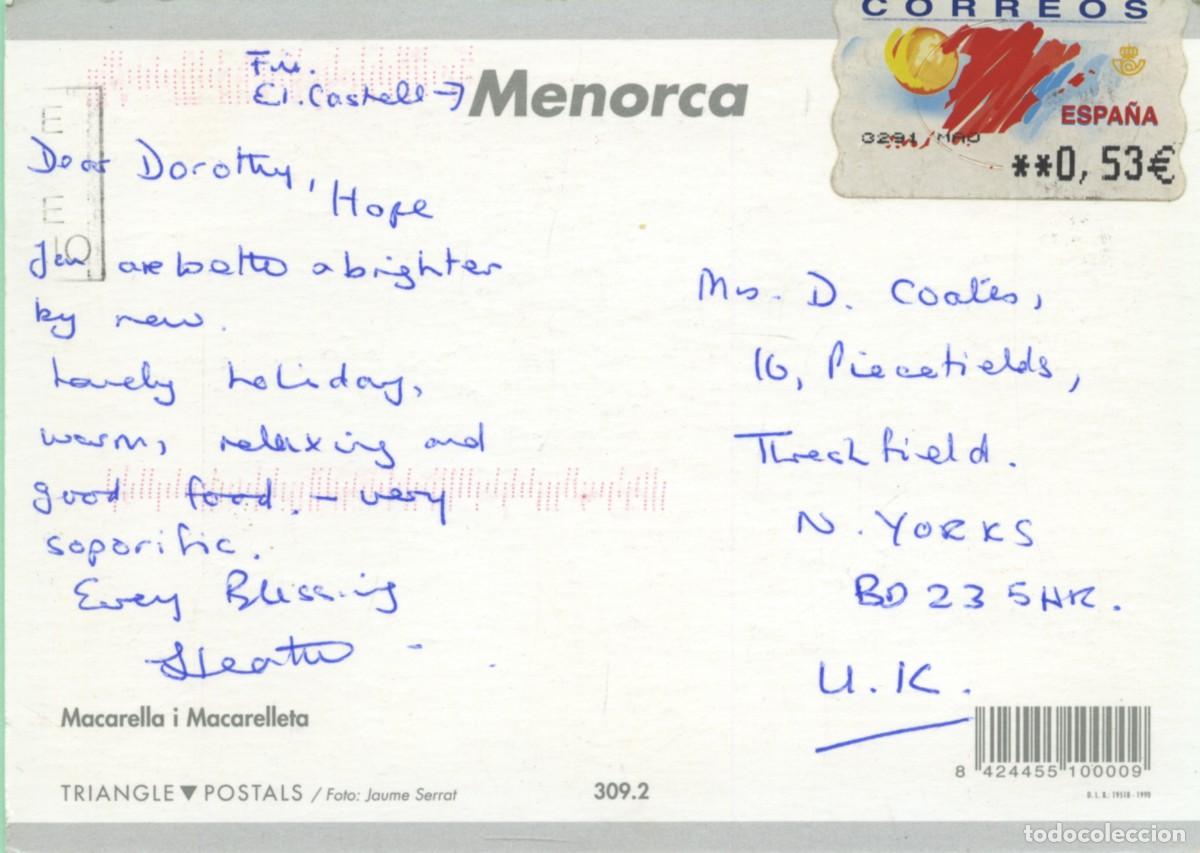 CORREOS
ESPAÑA
0291 MAO
**0,53€
Menorca
Fri.
El. Castell →
Dear Dorothy,
Hope
you are better & brighter
by now.
Lovely holiday,
warm, relaxing and
good food. – very
soporific.
Every Blessing
Heather
Mrs. D. Coates,
16, Piecefields,
Threshfield.
N. YORKS
BD23 5HR.
U.K.
Macarella i Macarelleta
TRIANGLE▼POSTALS / Foto: Jaume Serrat
309.2
8 424455 100009
D.L.B.: 19518 - 1990
todocoleccion